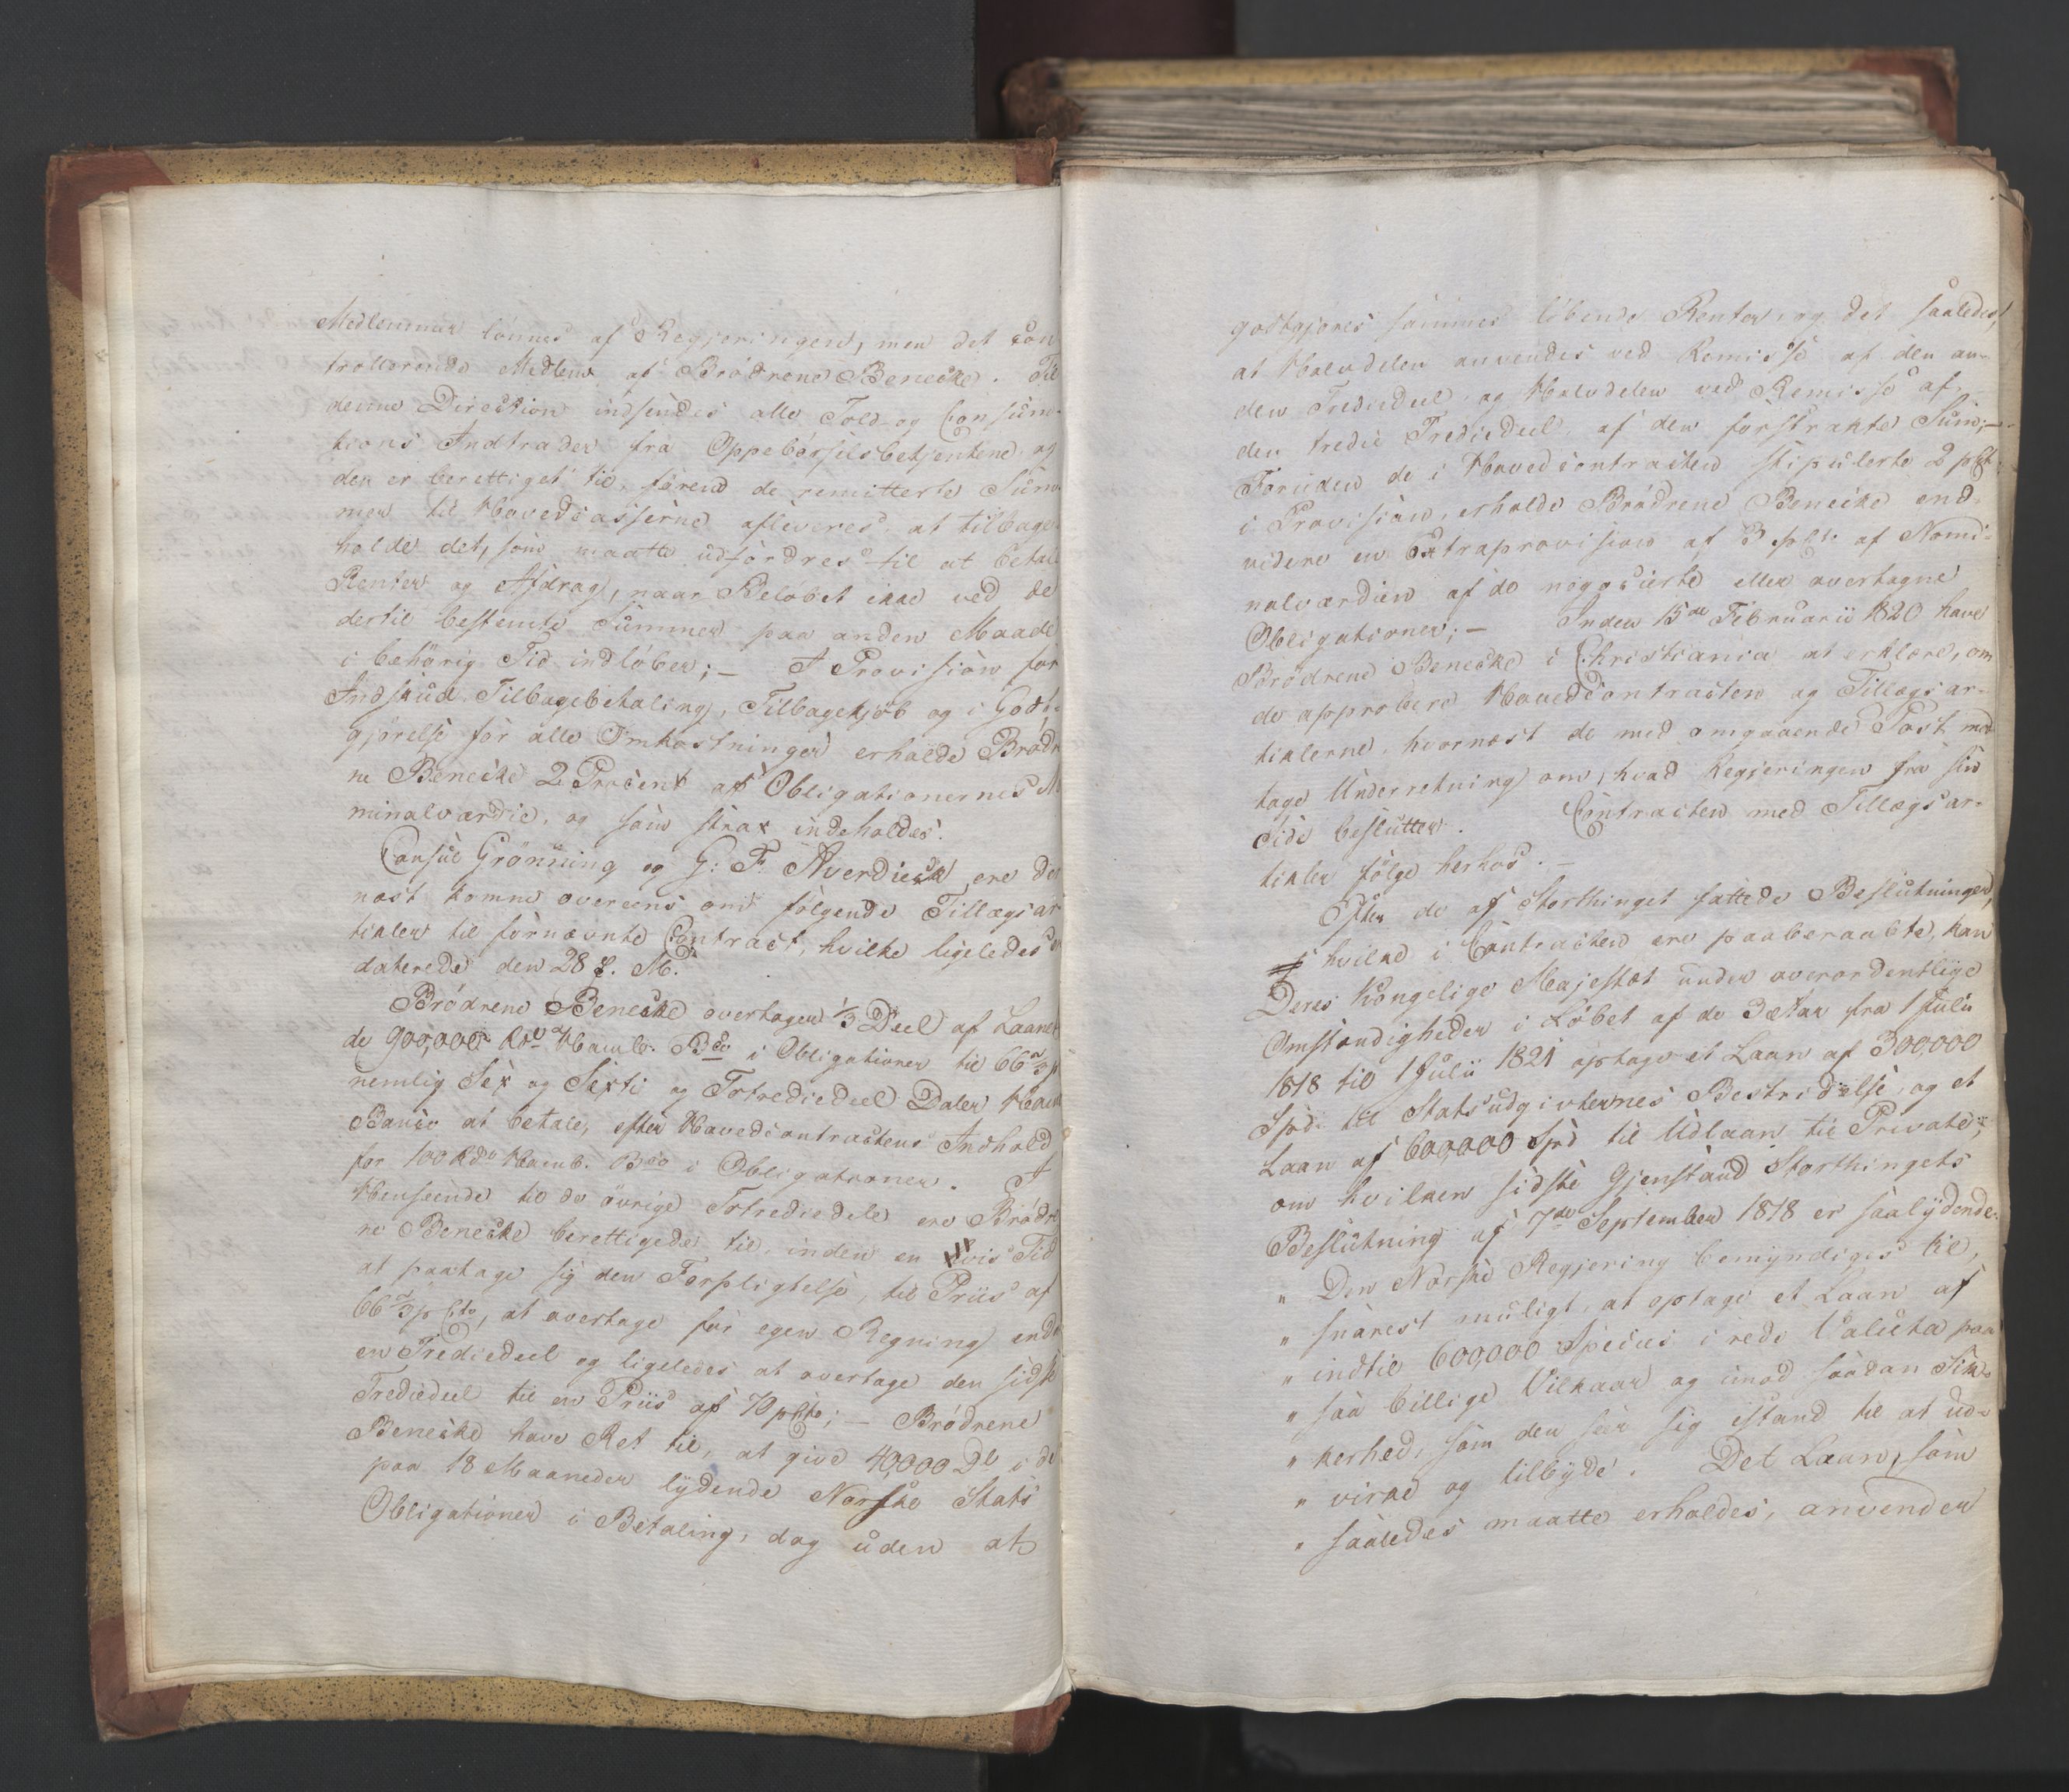 Medlemmer lønnes af Regjeringen, men det con
trollerende Medlem af Brødrene Benecke. Til
denne Direction indsendes alle Told- og Consum-
tions Indtrader fra Oppebørselsbetjentene, og
den er berettiget til, førend de remitterte Sum-
mer til Hovedcasserne afleveres at tilbage-
holde det, som maatte udfordres til at betale
Renter og Afdrag, naar Beløbet ikke ved de
dertil bestemte Summer paa anden Maade
i behørig Tid indløber; — I Provision for
Indskud Tilbagebetaling, Tilbagekjøb og i Godt-
gjørelse for alle Omkostninger erholde Brødr
ne Benecke 2 Procent af Obligationernes N
minalværdie, og som strax indeholdes.
Consul Grønning og G: F: Averdieck ere der
næst komne overeens om følgende Tillægsar
tikler til fornævnte Contract, hvilke ligeledes e
daterede den 28 f. M.
Brødrene Benecke overtager 1/3 Deel af Laanet
de 900,000 Rd Hamb. Bco i Obligationer til 66 2/3 p
nemlig Sex og Sexti og Totrediedeel Daler Hamb
Banco at betale, efter Hovedcontractens Indhold
for 100 Rd Hamb. Bco i Obligationer. I
Henseende til de øvrige Totrediedele ere Brødre
ne Benecke berettigede til, inden en vis Tid
at paatage sig den Forpligtelse, til Priis af
66 2/3 p Cto, at overtage for egen Regning endn
en Trediedeel og ligeledes at overtage den sidste
Trediedeel til en Priis af 70 p Cto; — Brødrene
Benecke have Ret til, at give 40,000 Dl i de
paa 18 Maaneder lydende Norske Stats
Obligationer i Betaling, dog uden at
godtgjøres sammes løbende Renter, og det saaledes,
at Halvdelen anvendes ved Remisse af den an-
den Trediedeel og Halvdelen ved Remisse af
den tredie Trediedeel, af den forstrakte Sum; —
Foruden de i Hovedcontracten stipulerte 2 p Ct
i Provision, erholde Brødrene Benecke end-
videre en Extraprovision af 3 p Ct. af Nomi-
nalværdien af de negocierte eller overtagne
Obligationer; — Inden 15de Februarii 1820 have
Brødrene Benecke i Christiania at erklære, om
de approbere Hovedcontracten og Tillægsar-
tiklerne, hvornæst de med omgaaende Post mod
tage Underretning om, hvad Regjeringen fra sin
Side beslutter. Contracten med Tillægsar-
tikler følge herhos. —
Efter de af Storthinget fattede Beslutninger,
hvilke i Contracten ere paaberaabte, kan
Deres Kongelige Majestæt under overordentlige
Omstændigheder i Løbet af de 3 Aar fra 1 Julii
1818 til 1 Julii 1821 optage et Laan af 300,000
Spd. til Statsudgivternes Bestridelse, og et
Laan af 600,000 Spd til Udlaan til Private;
om hvilken sidste Gjenstand Storthingets
Beslutning af 7de September 1818 er saalydende.
" Den Norske Regjering bemyndiges til,
" snarest muligt, at optage et Laan af
" indtil 600,000 Species i rede Valuta paa
" saa billige Vilkaar og imod saadan Sik-
" kerhed, som den seer sig istand til at ud-
" virke og tilbyde. Det Laan, som
" saaledes maatte erholdes, anvender